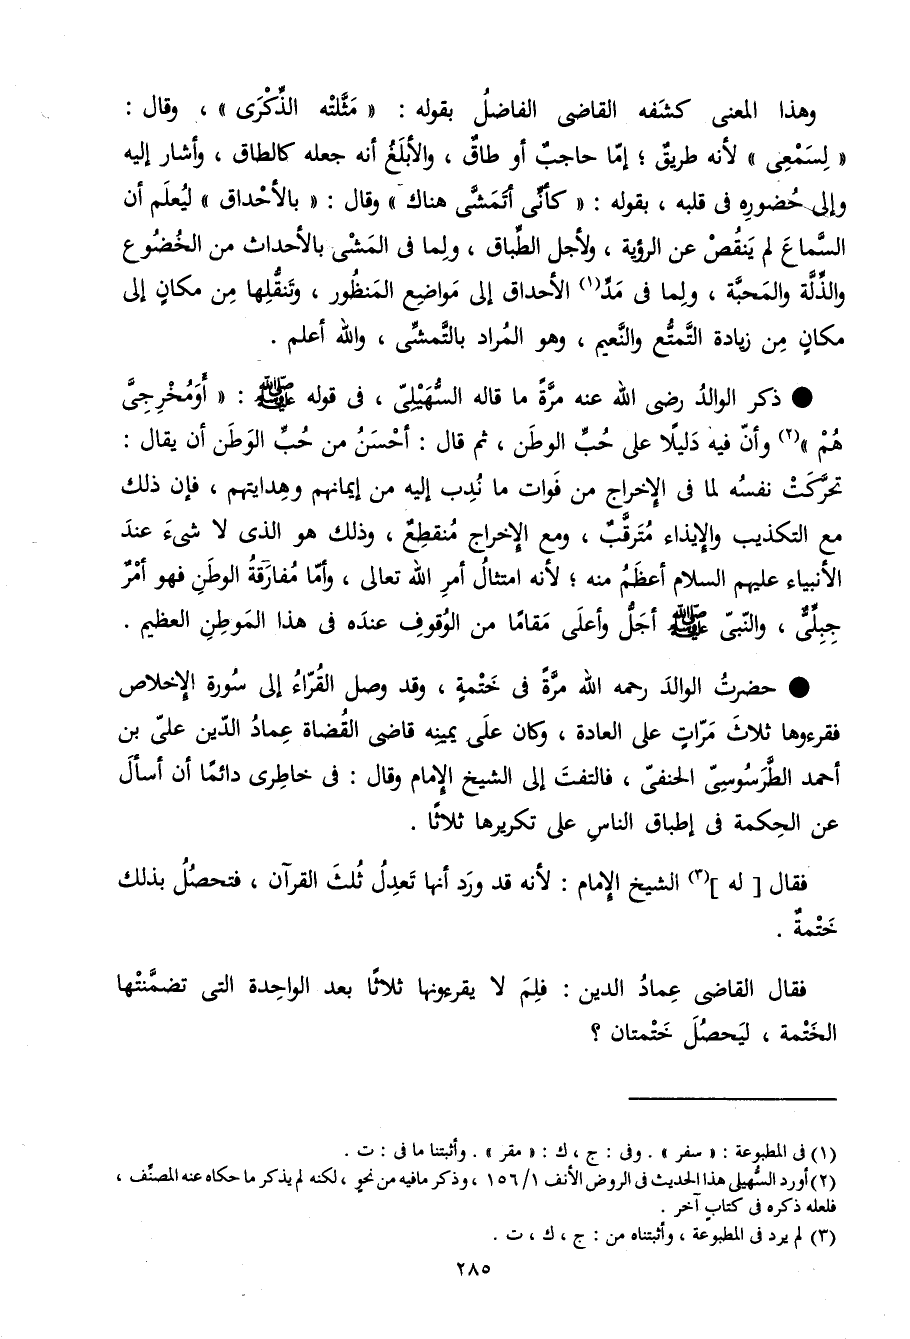 وهذا المعنى كشَفه القاضى الفاضلُ بقوله : « مَثَّلتْه الذِّكْرَى » ، وقال :
« لِسَمْعِى » لأنه طريقٌ ؛ إمّا حاجبٌ أو طاقٌ ، والأبلَغُ أنه جعله كالطاق ، وأشار إليه
وإلى حُضورِه فى قلبه ، بقوله : « كأنِّى أتَمَشَّى هناك » وقال : « بالأحْداق » ليُعلَم أن
السَّماعَ لم يَنقُصْ عن الرؤية ، ولأجل الطِّباق ، ولِما فى المَشْى بالأحداث من الخُضُوع
والذِّلَّة والمَحبَّة ، ولِما فى مَدِّ(١) الأحداق إلى مَواضِع المَنظُور ، وتَنقُّلِها مِن مكانٍ إلى
مكانٍ مِن زيادة التَّمتُّع والنَّعيم ، وهو المُراد بالتَّمشِّى ، والله أعلم .
● ذكر الوالدُ رضى الله عنه مرَّةً ما قاله السُّهَيْلِىّ ، فى قوله ﷺ : « أَوَمُخْرِجِىَّ
هُمْ »(٢) وأنّ فيه دَليلًا على حُبِّ الوطَن ، ثم قال : أحْسَنُ من حُبِّ الوَطَن أن يقال :
تحرَّكَتْ نفسُه لما فى الإخراج من فَوات ما نُدِب إليه من إيمانهم وهِدايتهم ، فإن ذلك
مع التكذيب والإيذاء مُتَرقَّبٌ ، ومع الإخراج مُنقطِعٌ ، وذلك هو الذى لا شىءَ عندَ
الأنبياء عليهم السلام أعظَمُ منه ؛ لأنه امتثالُ أمرِ الله تعالى ، وأمّا مُفارَقةُ الوطَنِ فهو أمْرٌ
جِبِلِّىٌّ ، والنّبىّ ﷺ أجَلُّ وأعلَى مَقامًا من الوُقوفِ عندَه فى هذا المَوطِنِ العظيم .
● حضرتُ الوالدَ رحمه الله مرَّةً فى خَتْمةٍ ، وقد وصل القُرّاءُ إلى سُورة الإخلاص
فقرءوها ثلاثَ مَرّاتٍ على العادة ، وكان علَى يمينِه قاضى القُضاة عِمادُ الدّين علىّ بن
أحمد الطَّرَسُوسِىّ الحنفىّ ، فالتفتَ إلى الشيخ الإمام وقال : فى خاطِرى دائمًا أن أسألَ
عن الحِكمة فى إطباق الناسِ على تكريرها ثلاثًا .
فقال [ له ](٣) الشيخ الإمام : لأنه قد ورَد أنها تَعدِلُ ثُلثَ القرآن ، فتحصُلُ بذلك
خَتْمةٌ .
فقال القاضى عِمادُ الدين : فلِمَ لا يقرءونها ثلاثًا بعد الواحِدة التى تضمَّنتْها
الخَتْمة ، ليَحصُلَ خَتْمتان ؟
(١) فى المطبوعة : « سفر » . وفى : ج ، ك : « مقر » . وأثبتنا ما فى : ت .
(٢) أورد السُّهيلى هذا الحديث فى الروض الأنف ١/ ١٥٦ ، وذكر مافيه من نحوٍ ، لكنه لم يذكر ما حكاه عنه المصنِّف ،
فلعله ذكره فى كتابٍ آخر .
(٣) لم يرد فى المطبوعة ، وأثبتناه من : ج ، ك ، ت .
٢٨٥